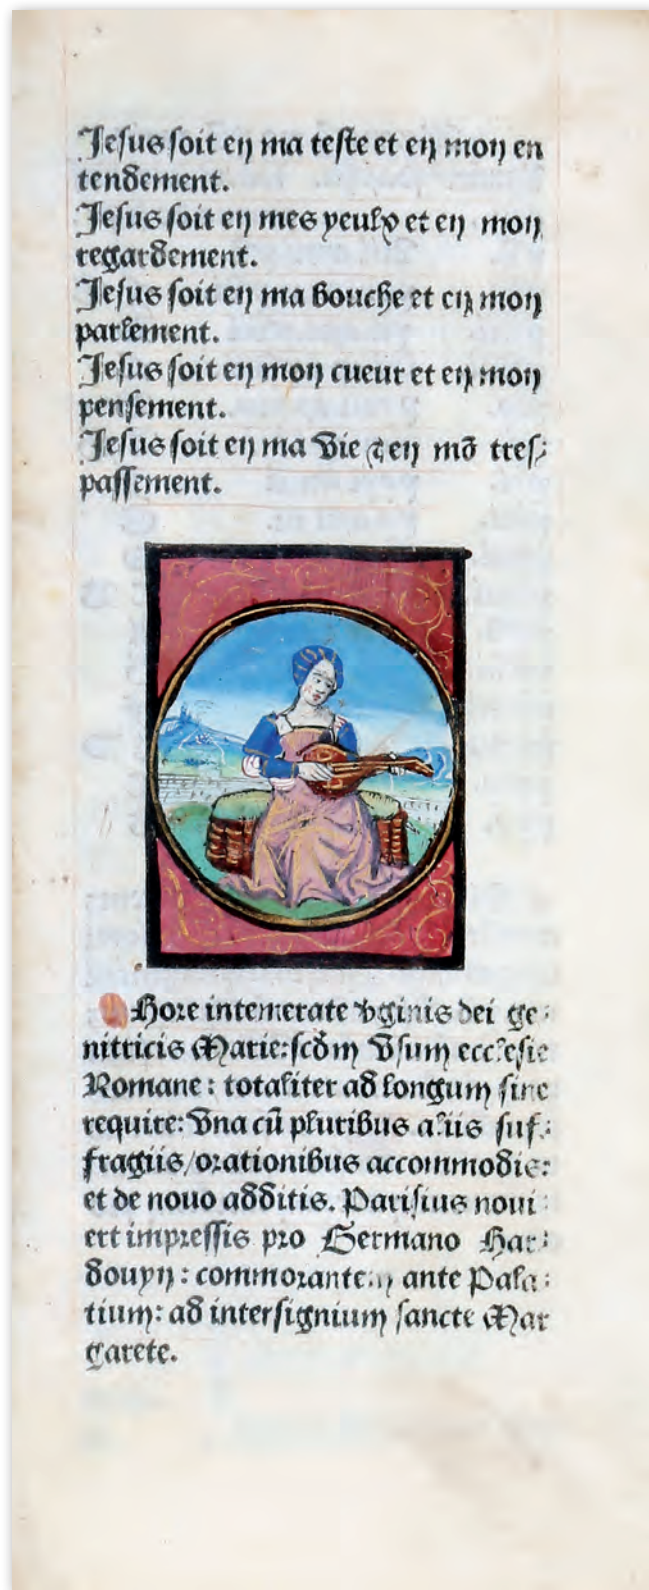 Jesus soit en ma teste et en mon en
tendement.
Jesus soit en mes yeulx et en mon
regardement.
Jesus soit en ma bouche et en mon
parlement.
Jesus soit en mon cueur et en mon
pensement.
Jesus soit en ma vie ⁊ en mõ tres⸗
passement.
Hore intemerate v̾ginis dei ge⸗
nitricis Marie: scd̃m vsum ecclesie
Romane: totaliter ad longum sine
require: vna cũ pluribus aliis suf⸗
fragiis/orationibus accommodis:
et de nouo additis. Parisius noui⸗
ert impressis pro Germano Har⸗
douyn: commorantem ante Pala⸗
tium: ad intersignium sancte Mar
garete.